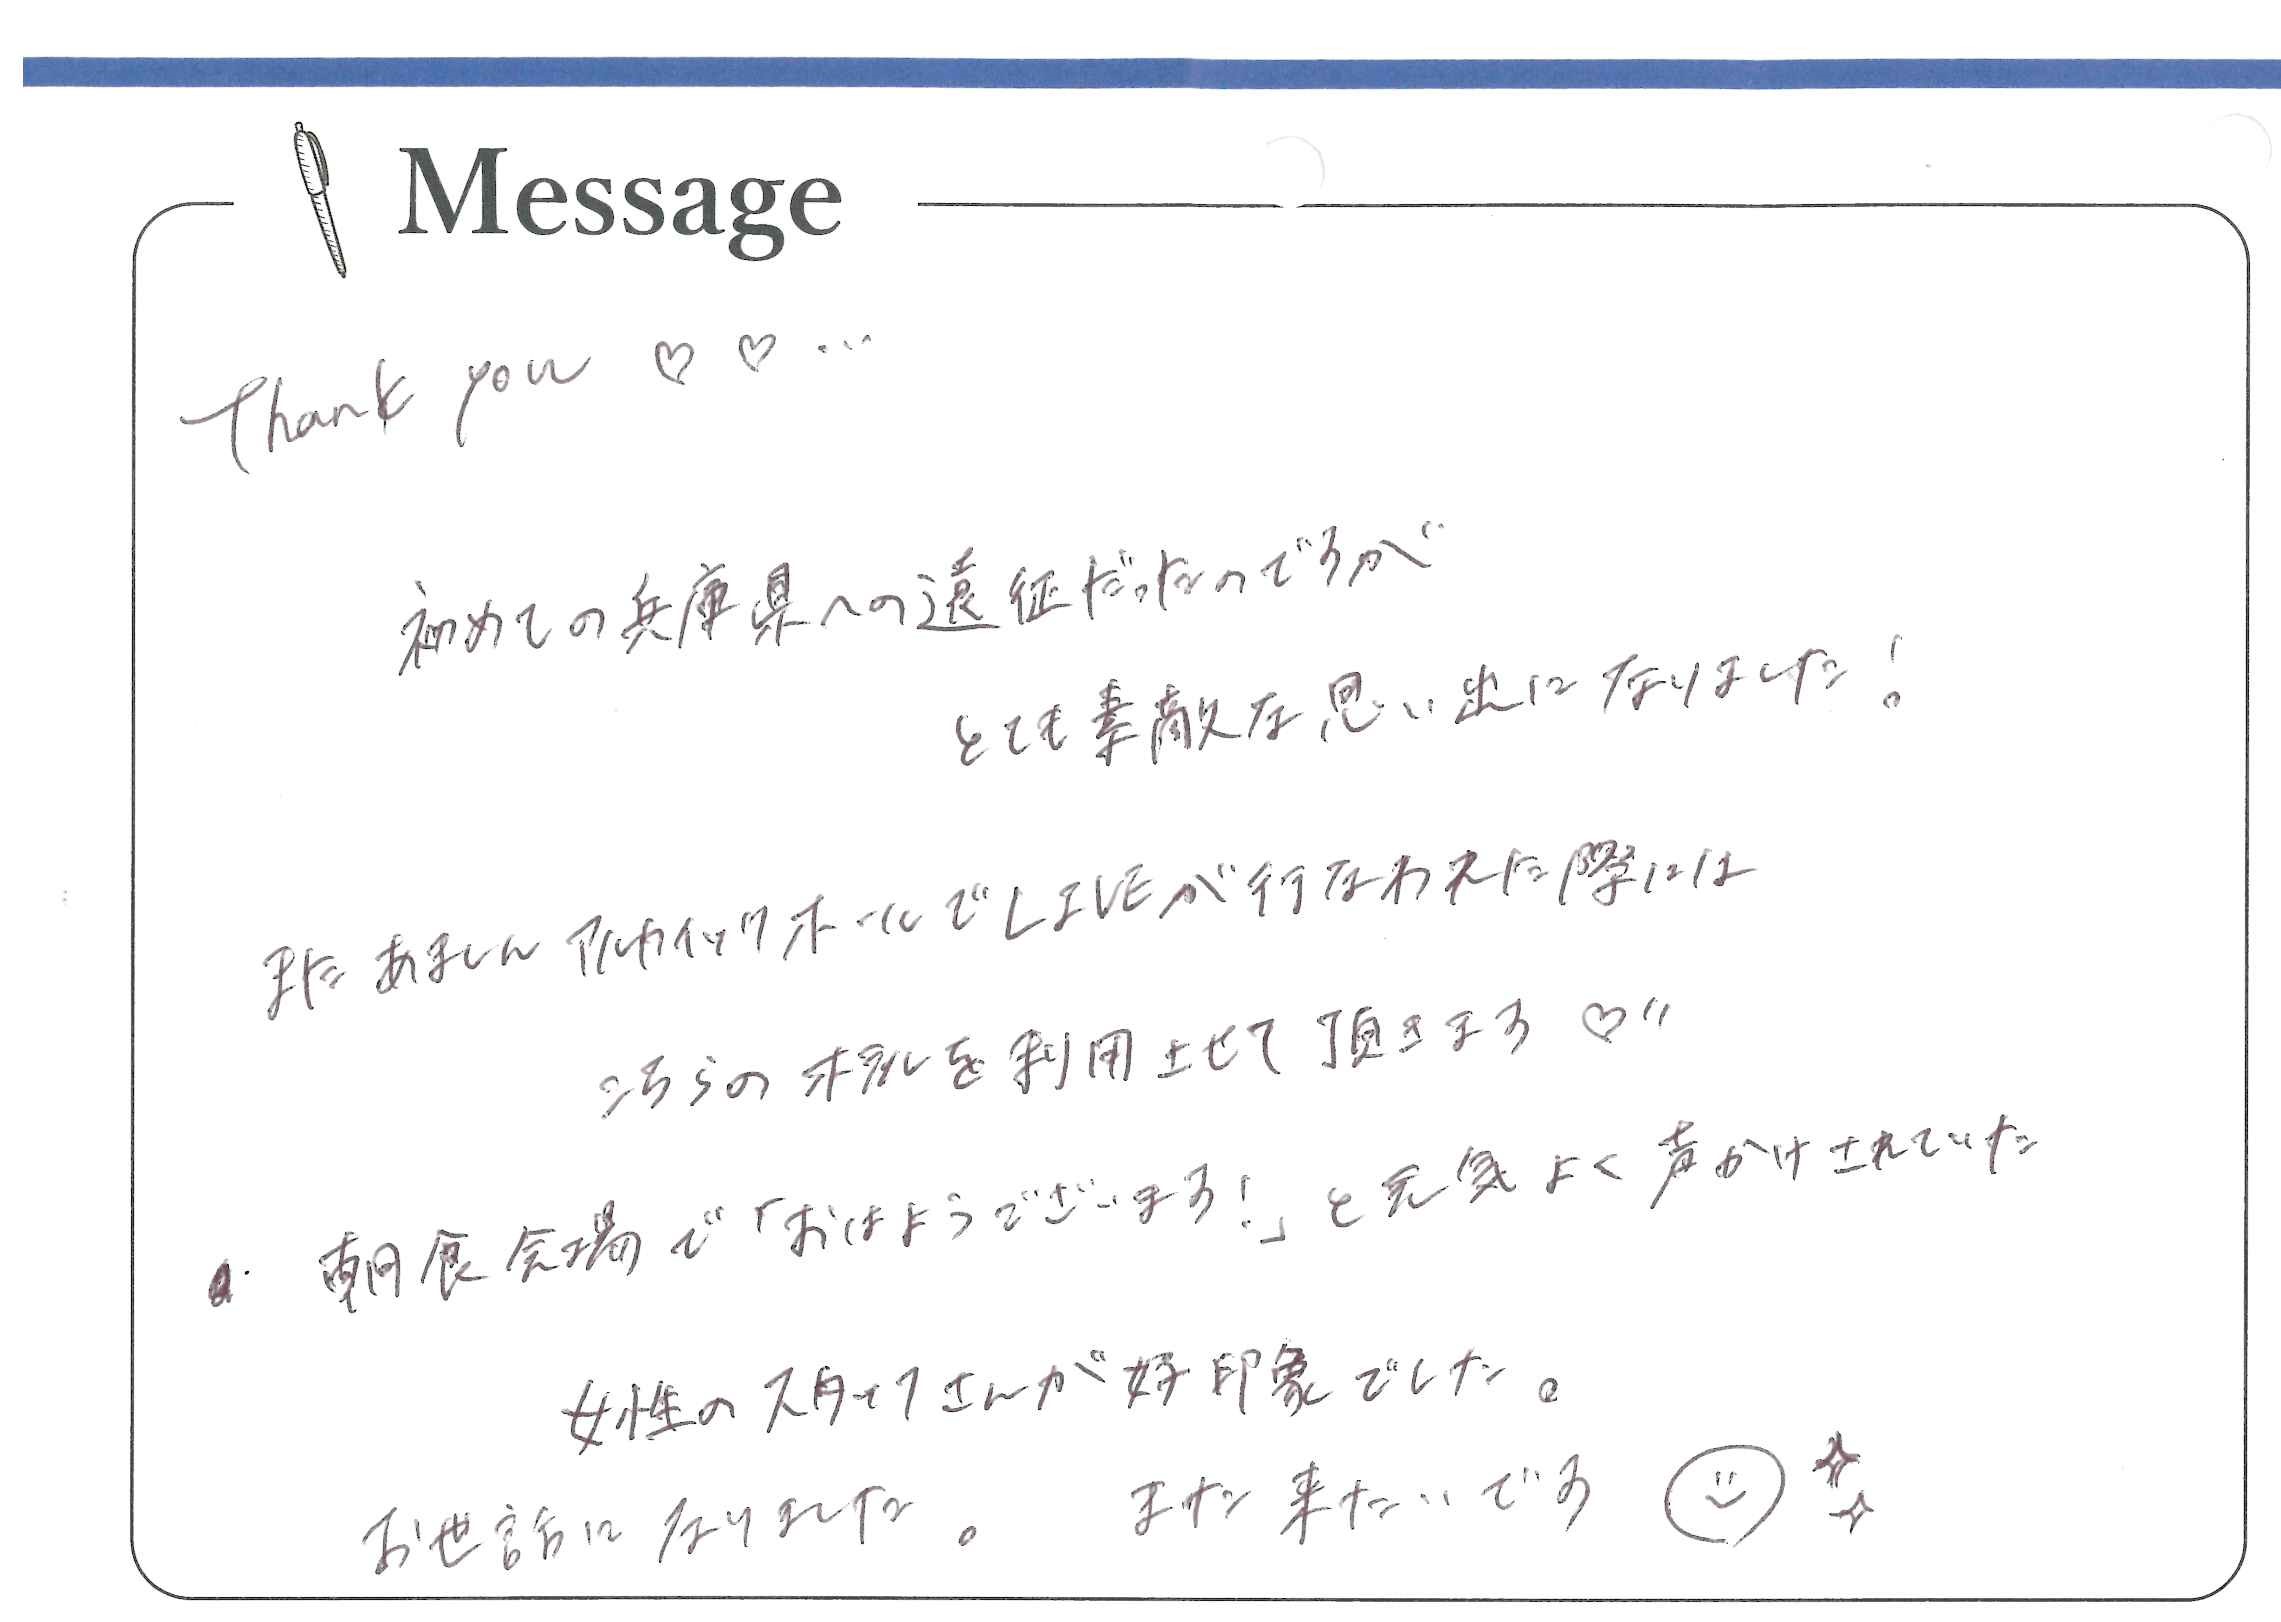 Message
Thank you ♡ ♡ …
初めての兵庫県への遠征だったのですが
とても素敵な思い出になりました!
またあましんアルカイックホールでLIVEが行なわれた際には
こちらのホテルを利用させて頂きます ♡"
朝食会場で「おはようございます!」と元気よく声かけされていた
女性のスタッフさんが好印象でした。
お世話になりました。 また来たいです